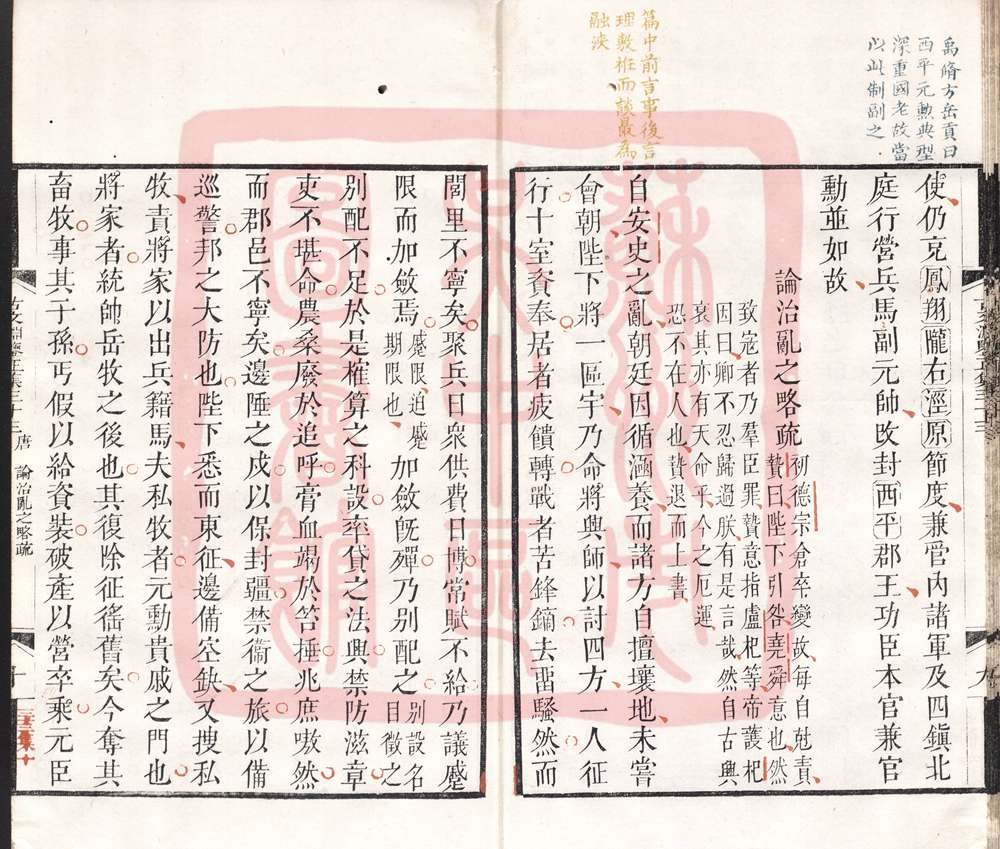 禹脩方岳貢曰
西平元勲典型
深重國老故當
以此制副之
使仍充鳳翔隴右涇原節度兼管內諸軍及四鎮北
庭行營兵馬副元帥改封西平郡王功臣本官兼官
勳並如故
論治亂之略疏初德宗倉卒變故每自尅責
贄曰陛下引咎堯舜意也然
致寇者乃羣臣罪贄意指盧杞等帝護杞
因曰卿不忍歸過朕有是言哉然自古興
衰其亦有天命乎今之厄運
恐不在人也贄退而上書
篇中前言事後言
理敷衽而談最為
融浹
自安史之亂朝廷因循涵養而諸方自擅壤地未嘗
會朝陛下將一區宇乃命將興師以討四方一人征
行十室資奉居者疲饋轉戰者苦鋒鏑去畱騷然而
閭里不寧矣聚兵日衆供費日博常賦不給乃議蹙
限而加斂焉蹙限迫蹙
期限也加斂旣殫乃別配之別設名
目徵之
別配不足於是榷算之科設率貸之法興禁防滋章
吏不堪命農桑廢於追呼膏血竭於笞捶兆庶嗷然
而郡邑不寧矣邊陲之戍以保封疆禁衞之旅以備
巡警邦之大防也陛下悉而東征邊備空缺又搜私
牧責將家以出兵籍馬夫私牧者元勳貴戚之門也
將家者統帥岳牧之後也其復除征徭舊矣今奪其
畜牧事其子孫丐假以給資裝破產以營卒乘元臣
古文淵鑒正集三十三 唐 論治亂之略疏
十
九
蘇州大學
圖書館